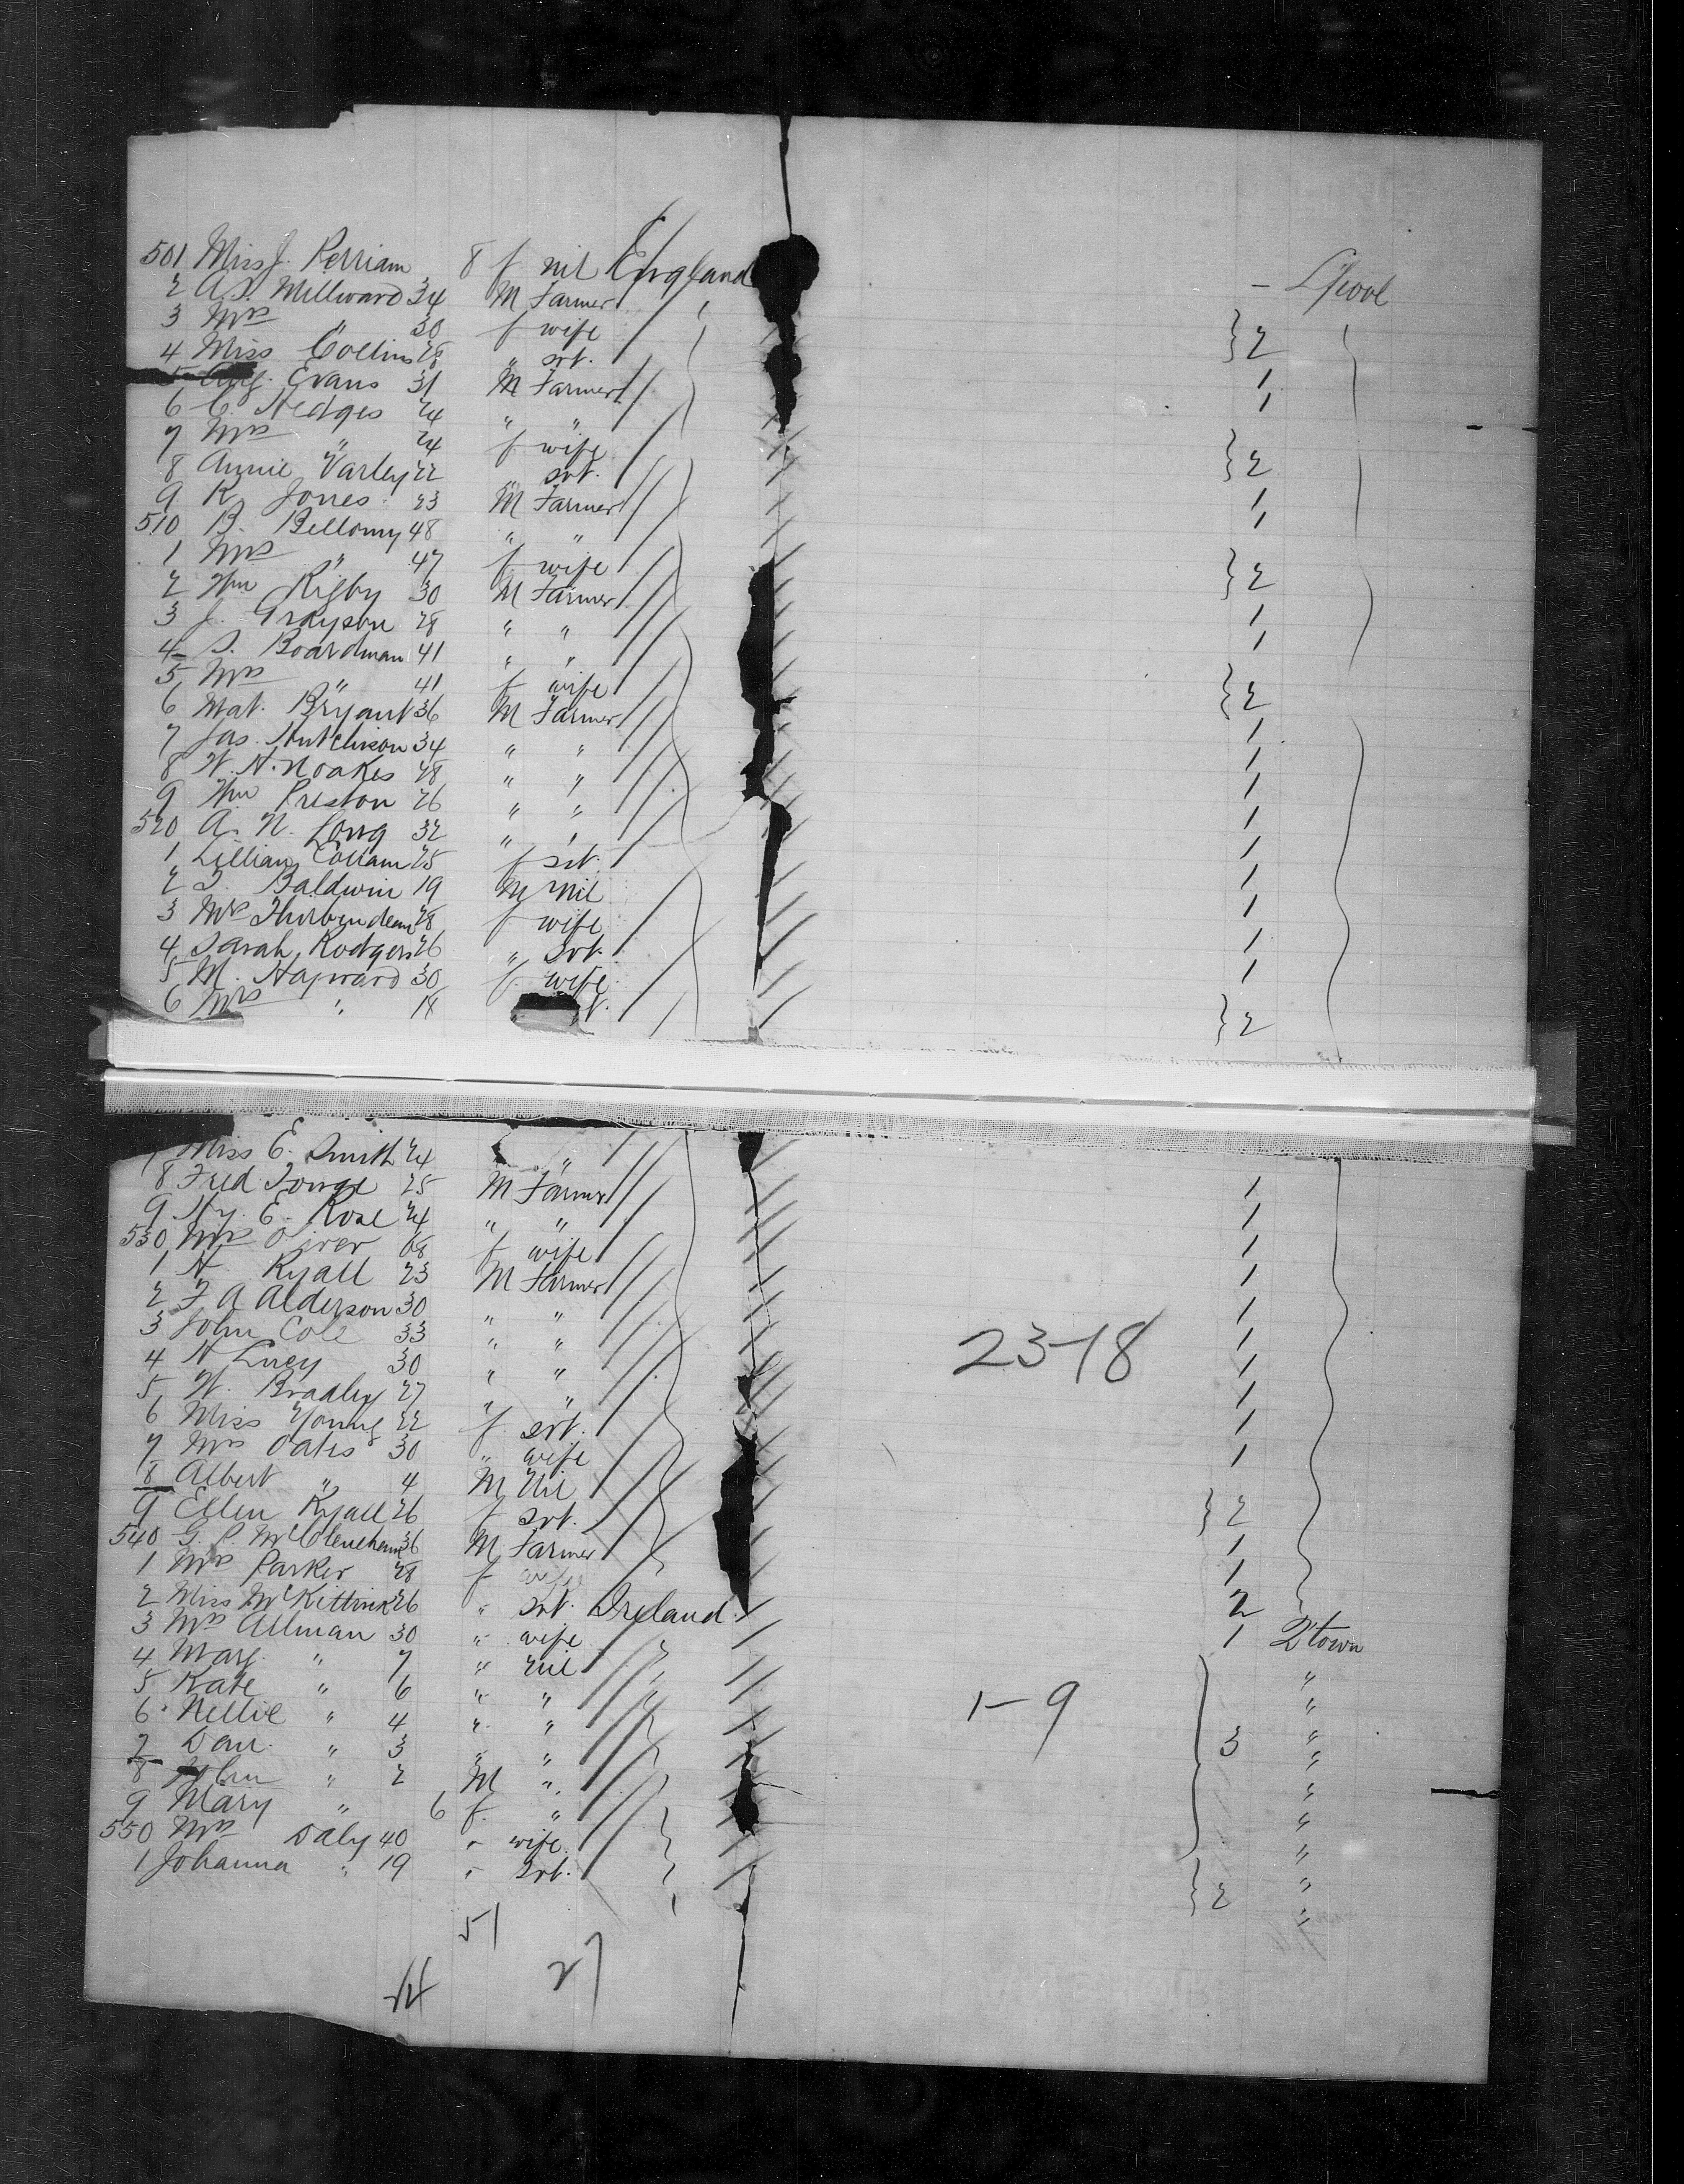 501 Miss J. Perriam 8 f nil England - L'pool
2 A.S. Millward 34 M Farmer
3 Mrs " 30 f wife } 2
4 Miss Collins 28 " svt. 1
5 Evans 31 M Farmer 1
6 C. Hedges 24 " "
7 Mrs " 24 f wife } 2
8 Annie Varley 22 " svt. 1
9 R. Jones 23 M Farmer 1
510 B. Bellomy 48 " "
1 Mrs " 47 f wife } 2
2 Wm Rigby 30 M Farmer 1
3 J. Grayson 28 " " 1
4 S. Boardman 41 " "
5 Mrs " 41 f wife } 2
6 Mat. Bryant 36 M Farmer 1
7 Jas. Hutchison 34 " " 1
8 W. H. Noakes 28 " " 1
9 Wm Preston 26 " " 1
520 A. N. Long 32 " " 1
1 Lillian 25 f svt. 1
2 S. Baldwin 19 M Nil 1
3 Mrs 28 f wife 1
4 Sarah Rodgers 26 " Svt. 1
5 M. Hayward 30 f. wife
6 Mrs " t. } 2
7 Miss E. Smith 24 " 1
8 Fred 25 M Farmer 1
9 Hy. E. Rose 24 " " 1
530 Mrs 68 f wife 1
1 H. Ryall 23 M Farmer 1
2 F A Alderson 30 " " 1
3 John Cole 33 " " 1
4 H Lucy 30 " " 1
5 W. Bradley 27 " " 1
6 Miss Young 22 f svt. 1
7 Mrs Oates 30 " wife
8 Albert " 4 M Nil } 2
9 Ellen Ryall 26 f svt. 1
540 G. P. 36 M Farmer 1
1 Mrs Parker 28 f wife 2
2 Miss McKittrick 26 " Svt. Ireland 1 Q'town
3 Mrs Allman 30 " wife "
4 Mary " 7 " Nil "
5 Kate " 6 " " "
6 Nellie " 4 " " 3 "
7 Dan. " 3 " " "
8 John " 2 M " "
9 Mary " 6 f. " "
550 Mrs Daly 40 " wife "
1 Johanna " 19 " Svt. } 2 "
23-18
1-9
51
27